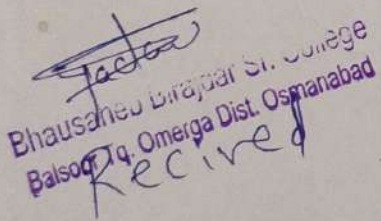 Bhausaheb Birajdar Sr. College
Balsoor Tq. Omerga Dist. Osmanabad
Recived